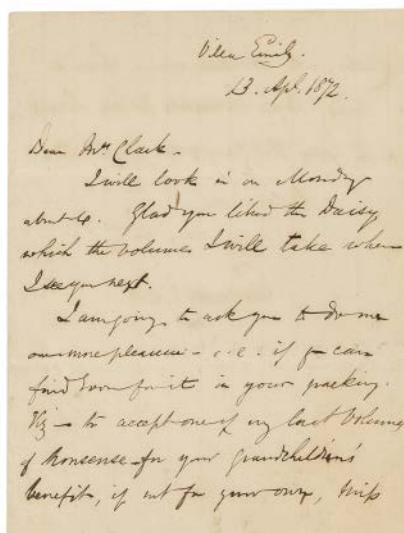 Villa Emily.
13. Apl. 1872.
Dear Mrs Clark.
I will look in on Monday
about 4. Glad you liked the Daisy
which the volumes I will take when
I see you next.
I am going to ask you to do me
one more pleasure - i.e. if you can
find room for it in your packing.
Viz - to accept one of my last Volumes
of Nonsense for your grandchildren's
benefit, if not for your own, this